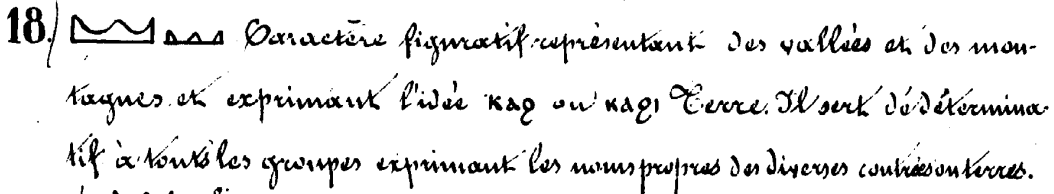 18. Caractère figuratif représentant des vallées et des mon-
tagnes et exprimant l'idée ⲕⲁϩ ou ⲕⲁϩⲓ Terre. Il sert de détermina-
tif à touts les groupes exprimant les noms propres des diverses contrées ou terres.